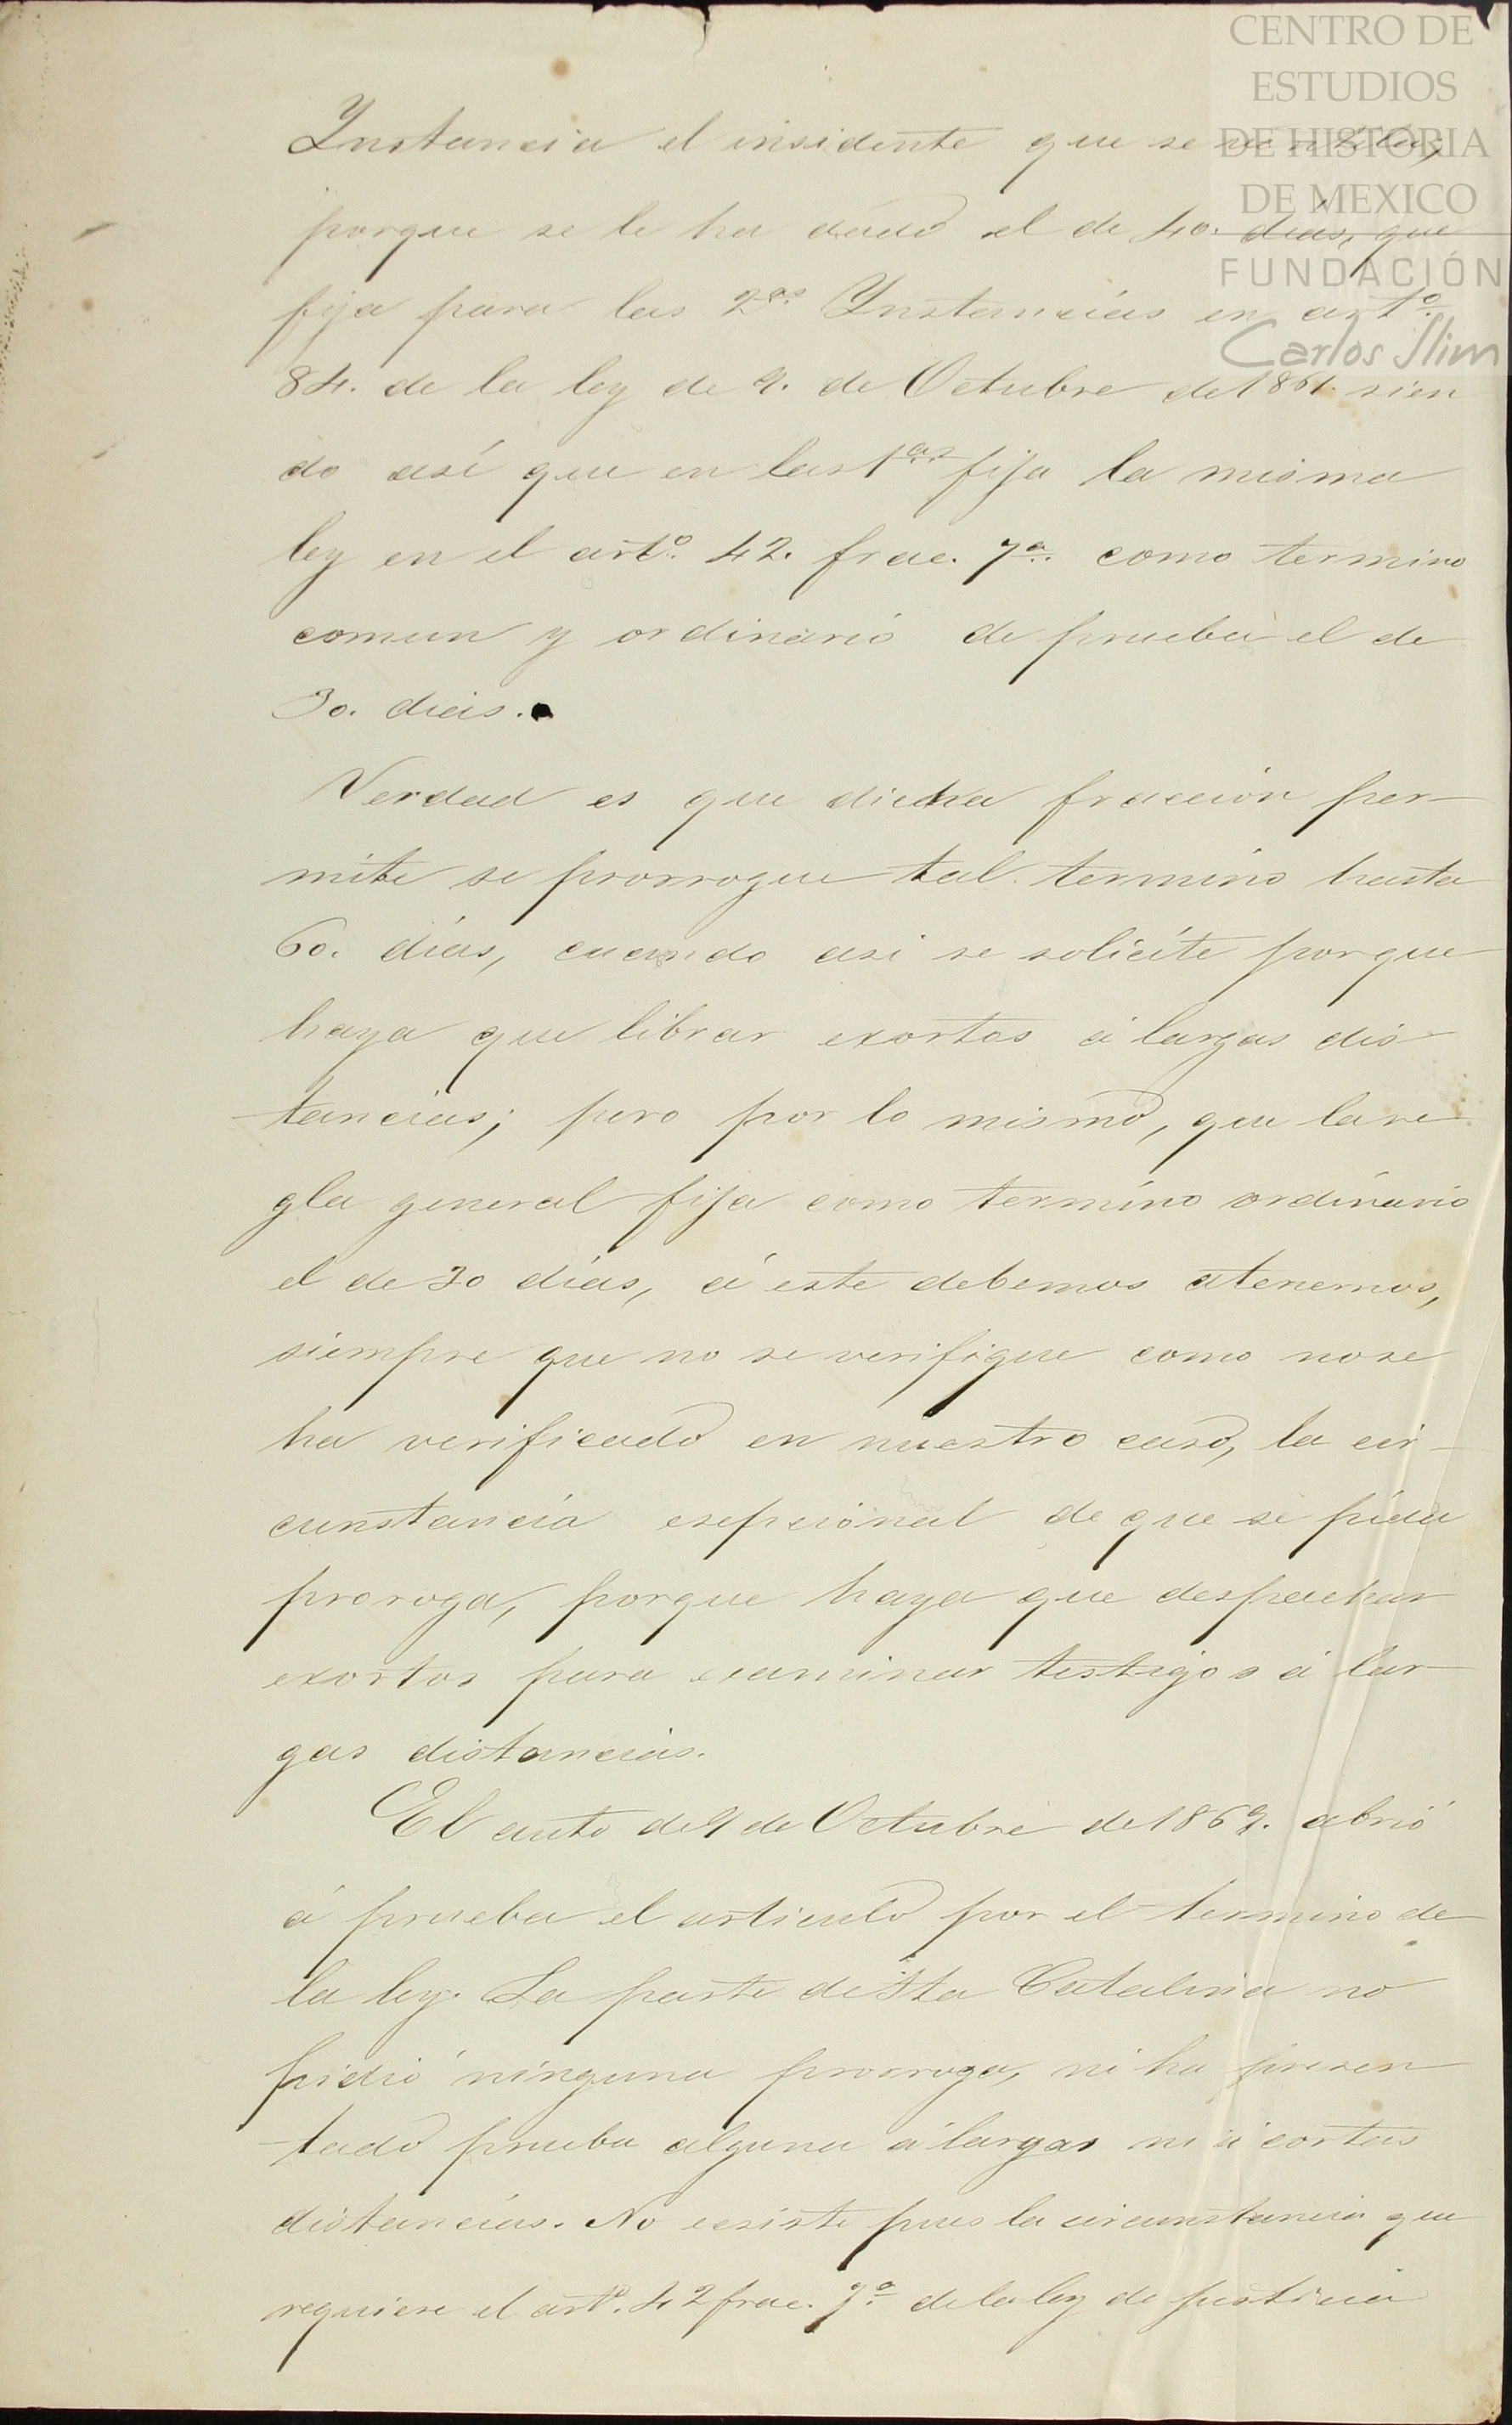 CENTRO DE
ESTUDIOS
DE HISTORIA
DE MEXICO
FUNDACIÓN
Carlos Slim
Instancia el insidente que se
porque se le ha dado el de 40. días, que
fija para las 2as Instancias en arto.
84. de la ley de 9. de Octubre de 1861. sien
do así que en las 1as fija la misma
ley en el arto. 42. frac. 7a. como termino
comun y ordinario de prueba el de
30. dias.
Verdad es que dicha fraccion per-
mite se prorrogue tal termino hasta
60. días, cuando asi se solicite porque
haya que librar exortos á largas dis
tancias; pero por lo mismo, que la re-
gla general fija como termino ordinario
el de 30 días, á este debemos atenernos,
siempre que no se verifique como no se
ha verificado en nuestro caso, la cir-
cunstancia esepcional de que se pida
proroga, porque haya que despachar
exortos para examinar testigos á lar-
gas distancias.
El auto de 9 de Octubre de 1869. abrió
á prueba el articulo por el termino de
la ley. La parte de Sta Catalina no
pidió ninguna prorroga, ni ha presen
tado prueba alguna á largas ni á cortas
distancias. No ecsiste pues la circunstancia que
requiere el arto. 42 frac. 7a. de la ley de justicia